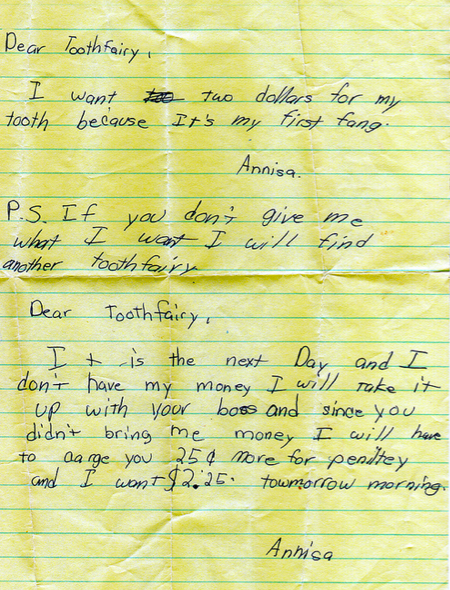 Dear Toothfairy,
I want two dollars for my
tooth because It's my first fang.
Annisa.
P.S. If you don't give me
what I want I will find
another toothfairy.
Dear Toothfairy,
It is the next Day and I
don't have my money I will take it
up with your boss and since you
didn't bring me money I will have
to aarge you 25¢ more for penltey
and I want $2.25. towmorrow morning.
Annisa